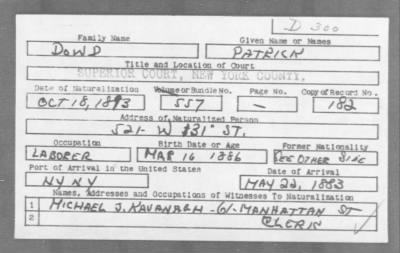 D 300
Family Name Given Name or Names
DOWD PATRICK
Title and Location of Court
SUPERIOR COURT, NEW YORK COUNTY.
Date of Naturalization Volume or Bundle No. Page No. Copy of Record No.
OCT 18, 1893 557 — 182
Address of Naturalized Person
521- W 131" ST.
Occupation Birth Date or Age Former Nationality
LABORER MAR 16 1866 SEE OTHER SIDE
Port of Arrival in the United States Date of Arrival
NY NY MAY 22, 1883
Names, Addresses and Occupations of Witnesses To Naturalization
1 MICHAEL J. KAVANAGH - 61- MANHATTAN ST
2 CLERK